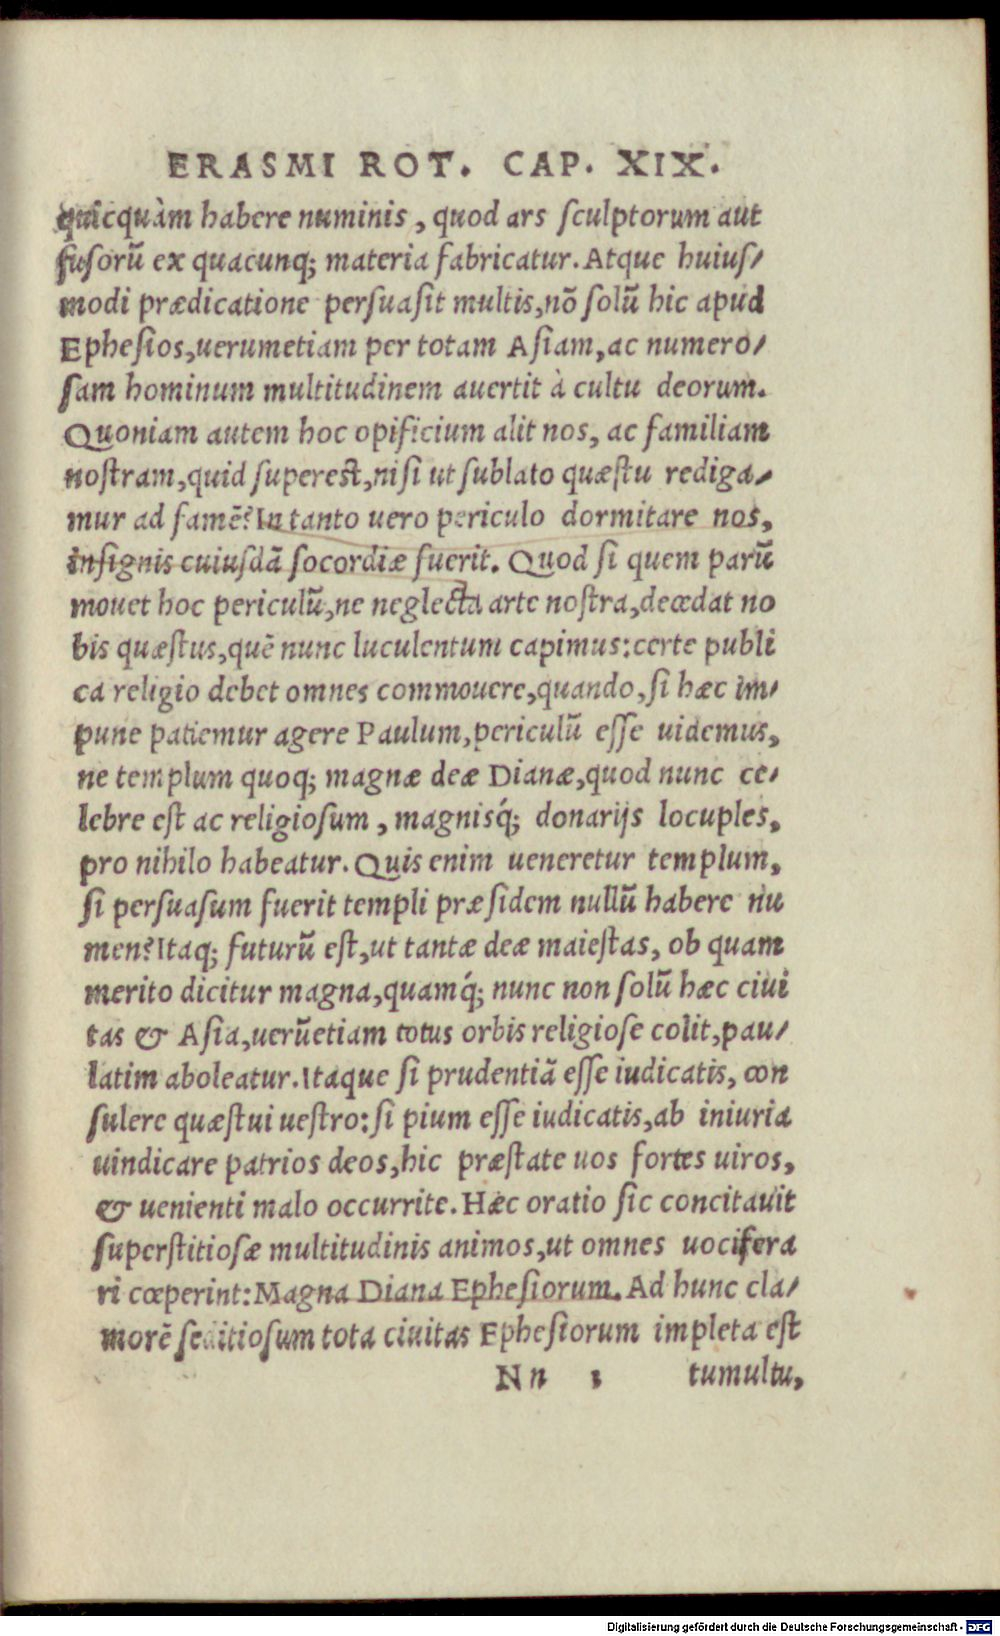 ERASMI ROT. CAP. XIX.
quicquàm habere numinis, quod ars ſculptorum aut
fuſorũ ex quacunq; materia fabricatur. Atque huiuſ/
modi prædicatione perſuaſit multis, nõ ſolũ hic apud
Epheſios, uerumetiam per totam Aſiam, ac numero/
ſam hominum multitudinem auertit à cultu deorum.
Quoniam autem hoc opificium alit nos, ac familiam
noſtram, quid ſupereſt, niſi ut ſublato quæſtu rediga/
mur ad famẽ? In tanto uero periculo dormitare nos,
inſignis cuiuſdã ſocordiæ fuerit. Quod ſi quem parũ
mouet hoc periculũ, ne neglecta arte noſtra, decedat no
bis quæſtus, quẽ nunc luculentum capimus: certe publi
ca religio debet omnes commouere, quando, ſi hæc im/
pune patiemur agere Paulum, periculũ eſſe uidemus,
ne templum quoq; magnæ deæ Dianæ, quod nunc ce/
lebre eſt ac religioſum, magnisq́; donarijs locuples,
pro nihilo habeatur. Quis enim ueneretur templum,
ſi perſuaſum fuerit templi præſidem nullũ habere nu
men? Itaq; futurũ eſt, ut tantæ deæ maieſtas, ob quam
merito dicitur magna, quamq́; nunc non ſolũ hæc ciui
tas & Aſia, uerũetiam totus orbis religioſe colit, pau/
latim aboleatur. Itaque ſi prudentiã eſſe iudicatis, con
ſulere quæſtui ueſtro: ſi pium eſſe iudicatis, ab iniuria
uindicare patrios deos, hic præſtate uos fortes uiros,
& uenienti malo occurrite. Hæc oratio ſic concitauit
ſuperſtitioſæ multitudinis animos, ut omnes uocifera
ri cœperint: Magna Diana Epheſiorum. Ad hunc cla/
morẽ ſeditioſum tota ciuitas Epheſiorum impleta eſt
Nn 1 tumultu,
Digitalisierung gefördert durch die Deutsche Forschungsgemeinschaft - DFG